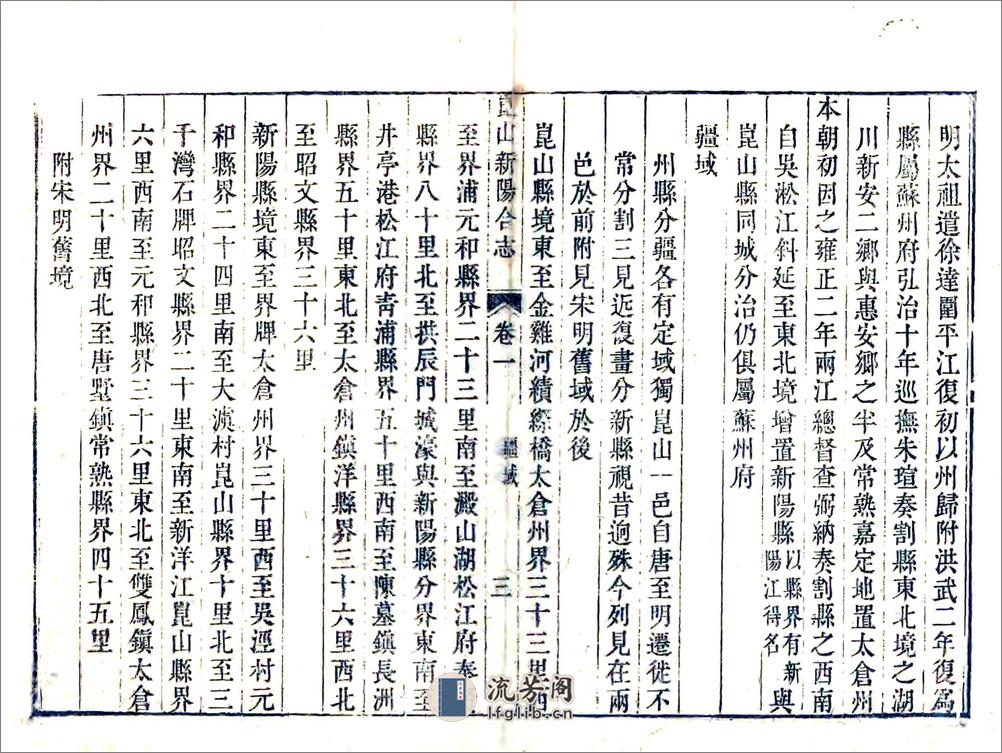 明太祖遣徐達圍平江復初以州歸附洪武二年復爲
縣屬蘇州府弘治十年巡撫朱瑄奏割縣東北境之湖
川新安二鄉與惠安鄉之半及常熟嘉定地置太倉州
本朝初因之雍正二年兩江總督查弼納奏割縣之西南
自吳淞江斜延至東北境增置新陽縣以縣界有新陽江得名與
崑山縣同城分治仍俱屬蘇州府
疆域
州縣分疆各有定域獨崑山一邑自唐至明遷徙不
常分割三見近復畫分新縣視昔逈殊今列見在兩
邑於前附見宋明舊域於後
崑山縣境東至金雞河績縩橋太倉州界三十三里西
崑山新陽合志 卷一 疆域 三
至界浦元和縣界二十三里南至澱山湖松江府奉
縣界八十里北至拱辰門城濠與新陽縣分界東南至
井亭港松江府青浦縣界五十里西南至陳墓鎮長洲
縣界五十里東北至太倉州鎮洋縣界三十六里西北
至昭文縣界三十六里
新陽縣境東至界牌太倉州界三十里西至吳涇村元
和縣界二十四里南至大滇村崑山縣界十里北至三
千灣石牌昭文縣界二十里東南至新洋江崑山縣界
六里西南至元和縣界三十六里東北至雙鳳鎮太倉
州界二十里西北至唐墅鎮常熟縣界四十五里
附宋明舊境
流芳阁
lfglib.cn